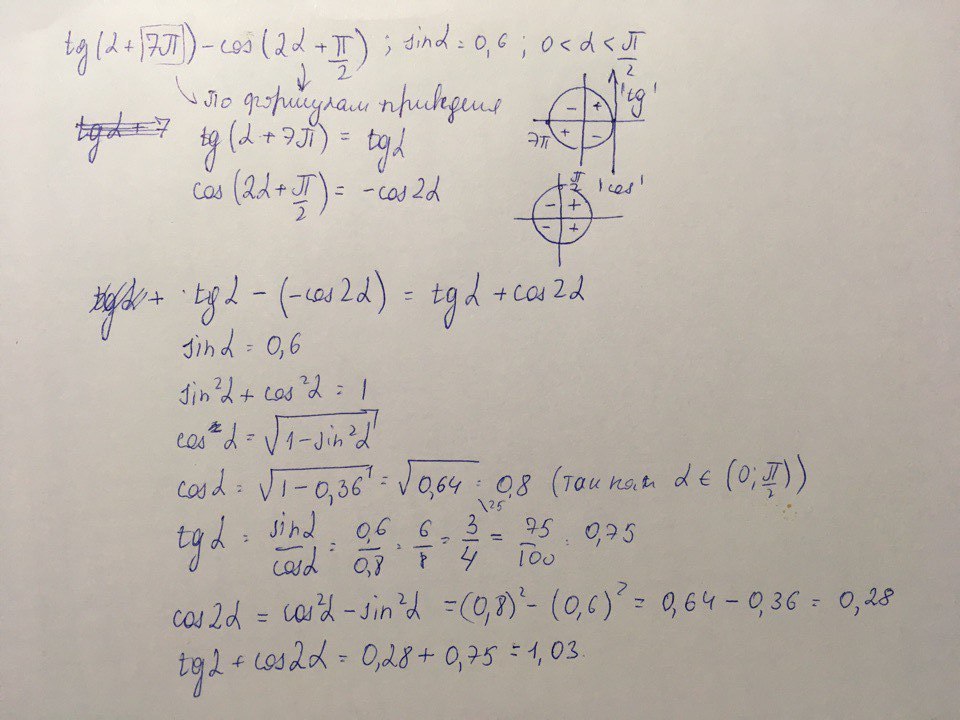 tg(α + 7π) - cos(2α + π/2) ; sinα = 0,6 ; 0 < α < π/2
по формулам приведения
tgα + 7
tg(α + 7π) = tgα
cos(2α + π/2) = -cos2α
- + 'tg'
7π + -
π/2 'cos'
- +
- +
tgα + tgα - (-cos2α) = tgα + cos2α
sinα = 0,6
sin²α + cos²α = 1
cosα = √(1 - sin²α)
cosα = √(1 - 0,36) = √0,64 = 0,8 (так как α ∈ (0; π/2))
tgα = sinα/cosα = 0,6/0,8 = 6/8 = 3/4 \25 = 75/100 = 0,75
cos2α = cos²α - sin²α = (0,8)² - (0,6)² = 0,64 - 0,36 = 0,28
tgα + cos2α = 0,28 + 0,75 = 1,03.